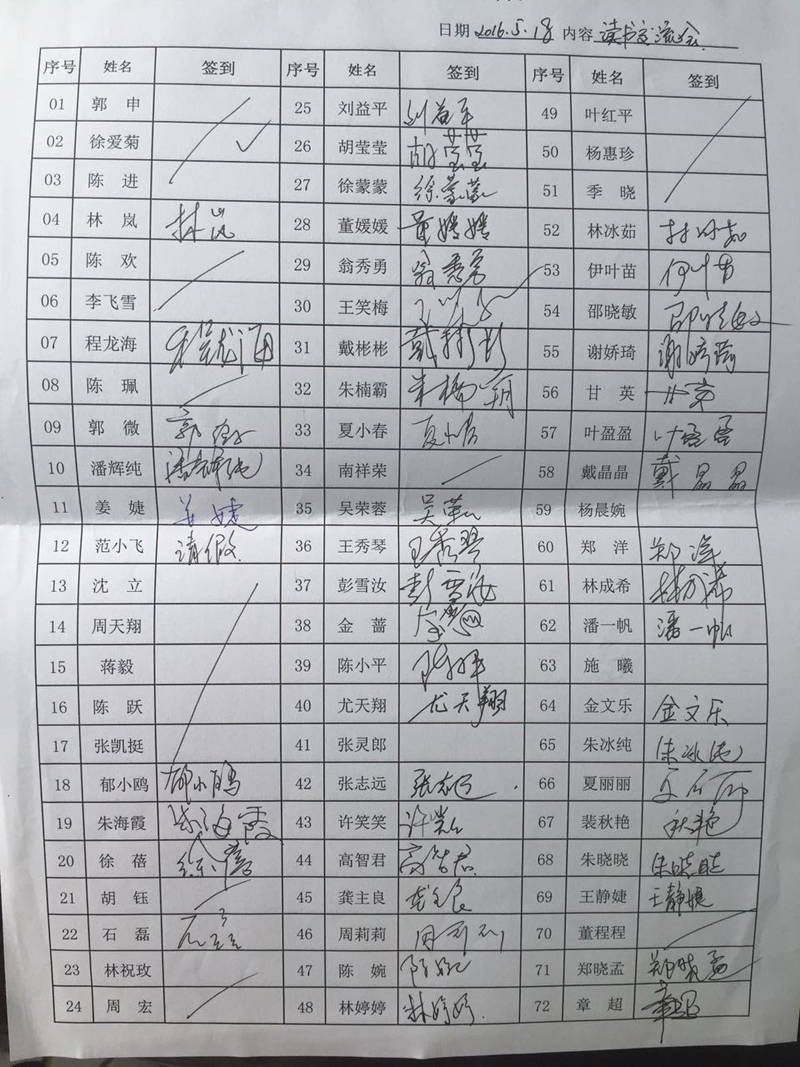 日期 2016.5.18 内容 读书交流会
序号 姓名 签到 序号 姓名 签到 序号 姓名 签到
01 郭申 25 刘益平 刘益平 49 叶红平
02 徐爱菊 26 胡莹莹 胡莹莹 50 杨惠珍
03 陈进 27 徐蒙蒙 徐蒙蒙 51 季晓
04 林岚 林岚 28 董媛媛 董媛媛 52 林冰茹 林冰茹
05 陈欢 29 翁秀勇 翁秀勇 53 伊叶苗 伊叶苗
06 李飞雪 30 王笑梅 54 邵晓敏 邵晓敏
07 程龙海 程龙海 31 戴彬彬 戴彬彬 55 谢娇琦 谢娇琦
08 陈珮 32 朱楠霸 朱楠霸 56 甘英 甘英
09 郭微 郭微 33 夏小春 夏小春 57 叶盈盈 叶盈盈
10 潘辉纯 潘辉纯 34 南祥荣 58 戴晶晶 戴晶晶
11 姜婕 姜婕 35 吴荣蓉 吴荣蓉 59 杨晨婉
12 范小飞 请假 36 王秀琴 王秀琴 60 郑洋 郑洋
13 沈立 37 彭雪汝 彭雪汝 61 林成希 林成希
14 周天翔 38 金蔷 62 潘一帆 潘一帆
15 蒋毅 39 陈小平 陈小平 63 施曦
16 陈跃 40 尤天翔 尤天翔 64 金文乐 金文乐
17 张凯挺 41 张灵郎 65 朱冰纯 朱冰纯
18 郁小鸥 郁小鸥 42 张志远 张志远 66 夏丽丽 夏丽丽
19 朱海霞 朱海霞 43 许笑笑 许笑笑 67 裴秋艳 秋艳
20 徐蓓 徐蓓 44 高智君 高智君 68 朱晓晓 朱晓晓
21 胡钰 45 龚主良 龚主良 69 王静婕 王静婕
22 石磊 石磊 46 周莉莉 周莉莉 70 董程程
23 林祝玫 47 陈婉 陈婉 71 郑晓孟 郑晓孟
24 周宏 48 林婷婷 林婷婷 72 章超 章超